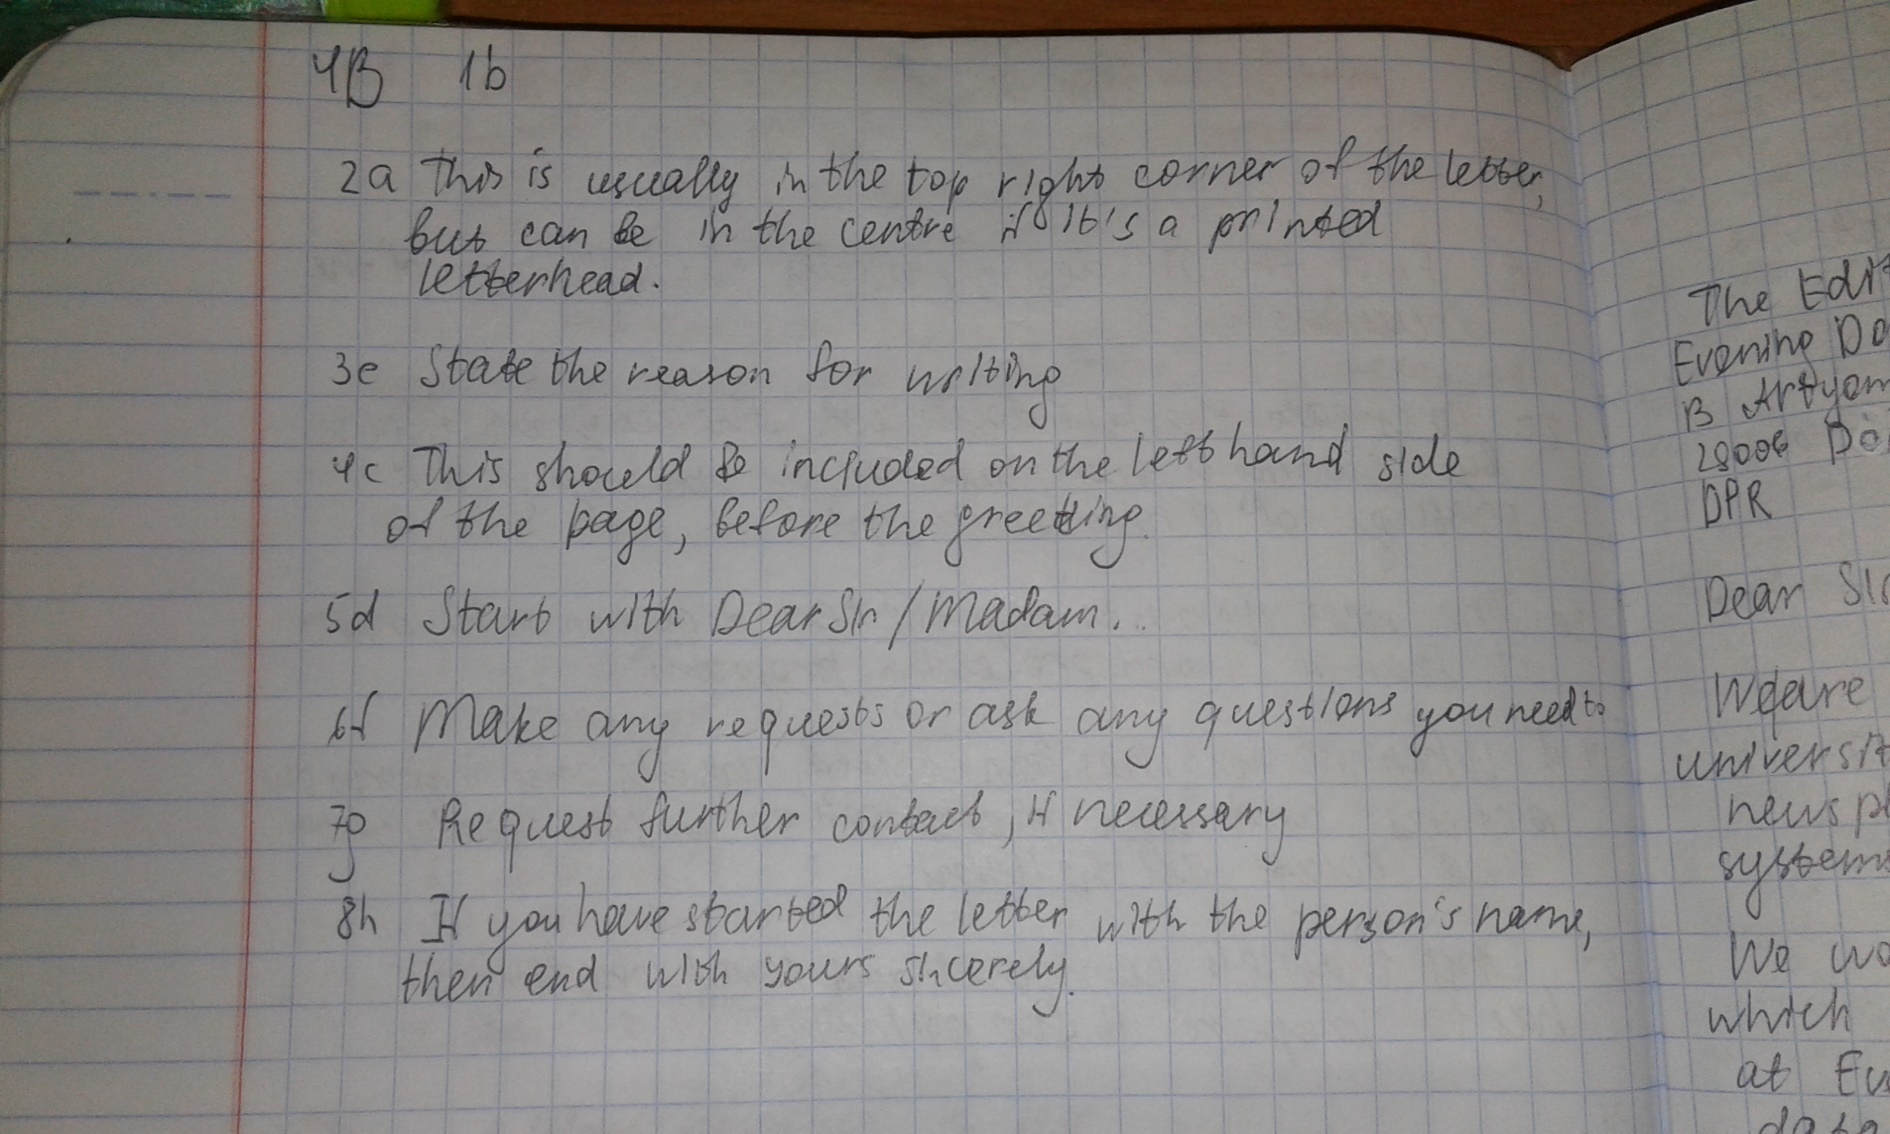 4B 1b
2a This is usually in the top right corner of the letter,
but can be in the centre if it's a printed
letterhead.
3e State the reason for writing
4c This should be included on the left hand side
of the page, before the greeting.
5d Start with Dear Sir / Madam...
6f Make any requests or ask any questions you need to
7g Request further contact, if necessary
8h If you have started the letter with the person's name,
then end with yours sincerely.
The Edit
Evening Do
B Artyom
28006 Do
DPR
Dear Sir
We are
universit
newspl
systems
We wo
which
at Ev
data